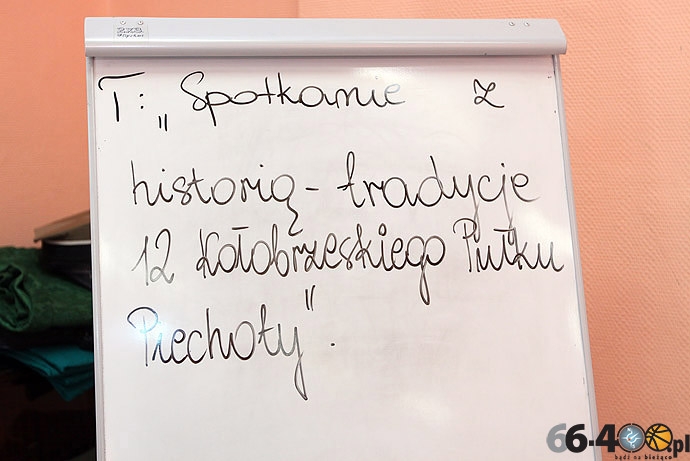 2x3
T: „Spotkanie z
historią - tradycje
12 Kołobrzeskiego Pułku
Piechoty".
66-400.pl
bądź na bieżąco